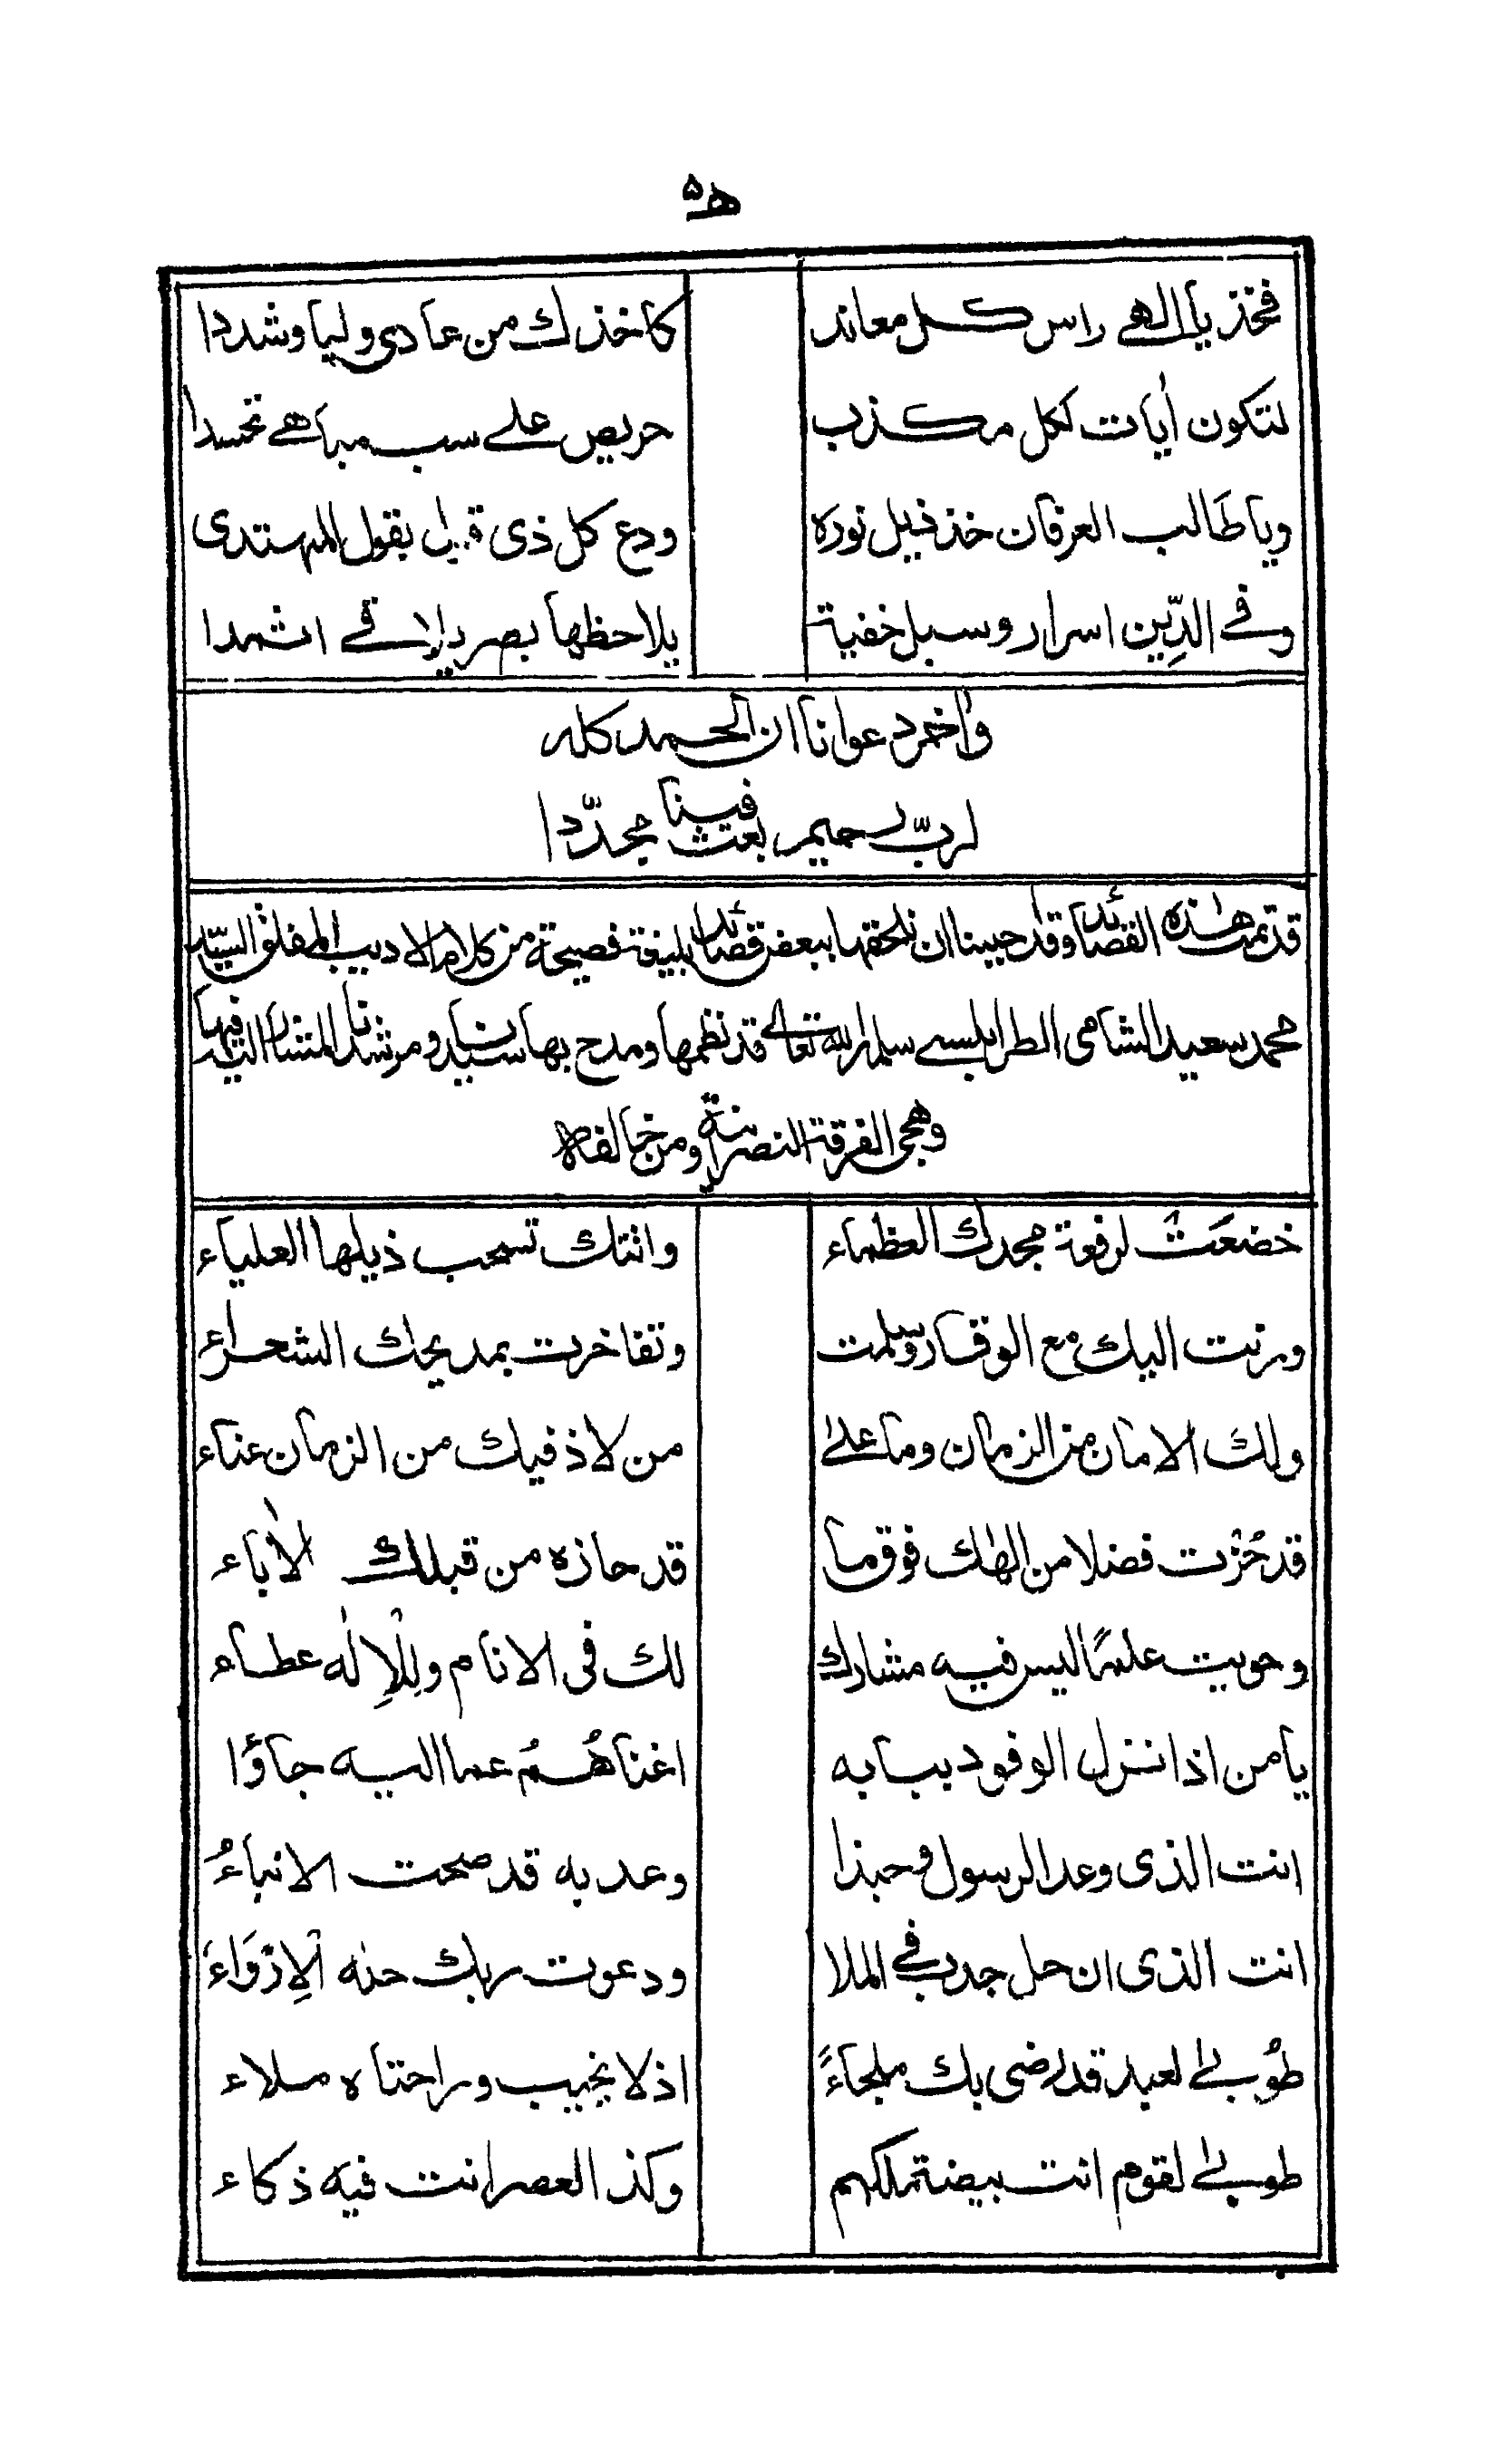 فخذ يا الهى راس كل معاند كاخذك من عادى وليا وشددا
لتكون أيات لكل مكذب حريص على سب مباهى تحسدا
ويا طالب العرفان خذ ذيل نوره ودع كل ذى قيل بقول المهتدى
وفى الدِّين اسرار وسبل خفية يلاحظها بصر يلاقى اثمدا
وأخر دعوانا ان الحمد كله
لربّ رحيم بعث فينا مجدّدا
قد تمت هٰذه القصائد وقد احببنا ان نلحقها ببعض قصائد بليغة فصيحة من كلام الاديب المفلق السيّد
محمد سعيد الشامى الطرابلسى سلمه الله تعالى قد نظمها ومدح بها سيدنا ومرشدنا المشار اليه فيها
وهجى الفرقة النصرانية ومن خالفه
خضعَت لرفعة مجدك العظماء واتتك تسحب ذيلها العلياء
ورنت اليك مع الوقار وسلمت وتفاخرت بمديحك الشعراء
ولك الامان من الزمان وما على من لاذ فيك من الزمان عناء
قد حُزت فضلا من الٰهك فوق ما قد حازه من قبلك الأباء
وحويت علمًا ليس فيه مشارك لك فى الانام وللإلٰه عطاء
يا من اذا نزل الوفود ببابه اغناهُمُ عما اليه جاؤا
انت الذى وعد الرسول وحبذا وعد به قد صحت الانباءُ
انت الذى ان حل جدب فى الملا ودعوت ربك حله الإرْوَاء
طُوبىٰ لعبد قد رضى بك ملجاءً اذ لا يخيب وراحتاه ملاء
طوبىٰ لقوم انت بيضة ملكهم وكذا العصر انت فيه ذكاء